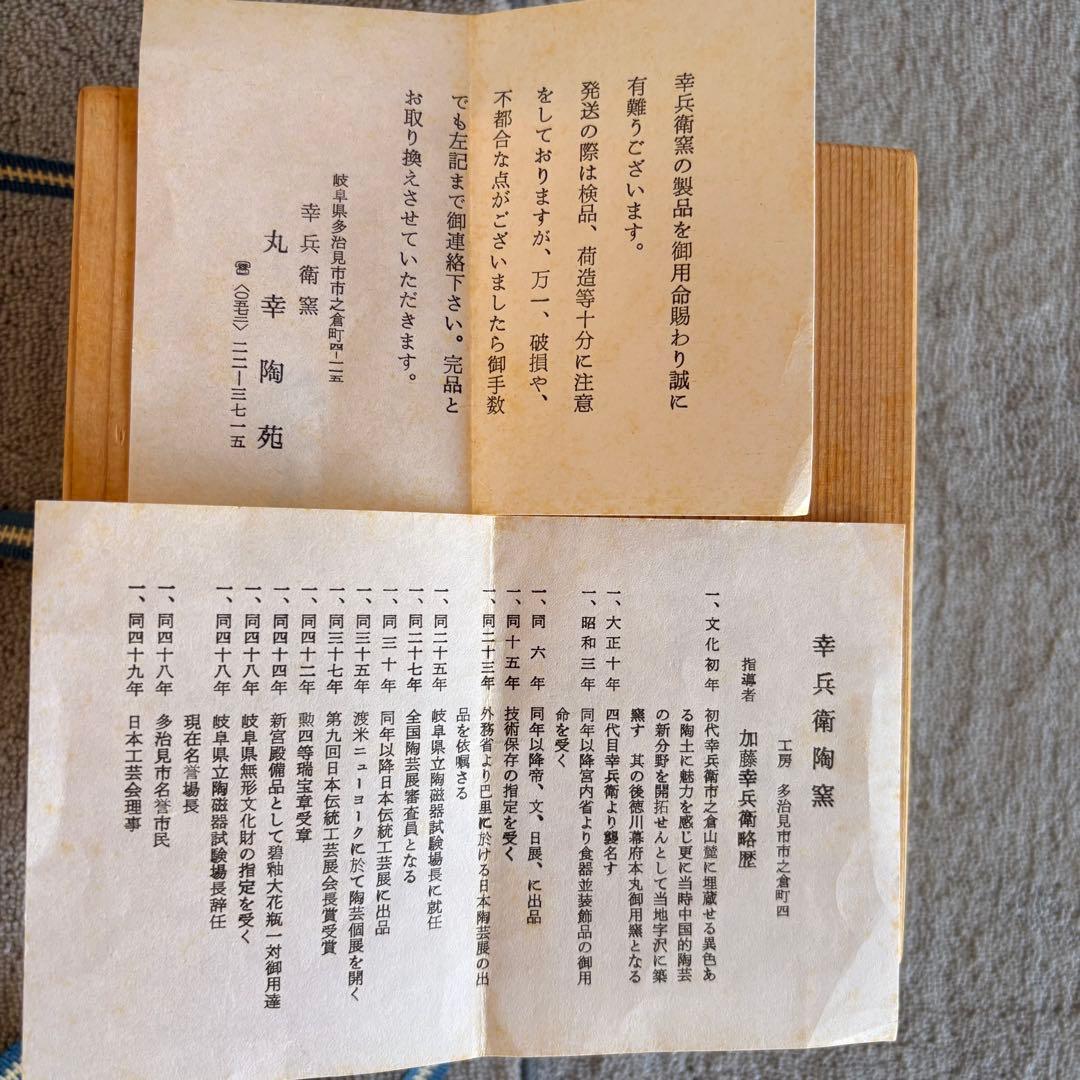 幸兵衛窯の製品を御用命賜わり誠に
有難うございます。
発送の際は検品、荷造等十分に注意
をしておりますが、万一、破損や、
不都合な点がございましたら御手数
でも左記まで御連絡下さい。完品と
お取り換えさせていただきます。
岐阜県多治見市市之倉町四-二五
幸兵衛窯
丸幸陶苑
☎〈〇五七三〉二二-三七一五
幸兵衛陶窯
工房 多治見市市之倉町四
指導者 加藤幸兵衛略歴
一、文化初年 初代幸兵衛市之倉山麓に埋蔵せる異色あ
る陶土に魅力を感じ更に当時中国的陶芸
の新分野を開拓せんとして当地字沢に築
窯す 其の後徳川幕府本丸御用窯となる
一、大正十年 四代目幸兵衛より襲名す
一、昭和三年 同年以降宮内省より食器並装飾品の御用
命を受く
一、同六年 同年以降帝、文、日展、に出品
一、同十五年 技術保存の指定を受く
一、同二十三年 外務省より巴里に於ける日本陶芸展の出
品を依嘱さる
一、同二十五年 岐阜県立陶磁器試験場長に就任
一、同二十七年 全国陶芸展審査員となる
一、同三十年 同年以降日本伝統工芸展に出品
一、同三十五年 渡米ニューヨークに於て陶芸個展を開く
一、同三十七年 第九回日本伝統工芸展会長賞受賞
一、同四十二年 勲四等瑞宝章受章
一、同四十四年 新宮殿備品として碧釉大花瓶一対御用達
一、同四十八年 岐阜県無形文化財の指定を受く
一、同四十八年 岐阜県立陶磁器試験場長辞任
現在名誉場長
一、同四十八年 多治見市名誉市民
一、同四十九年 日本工芸会理事